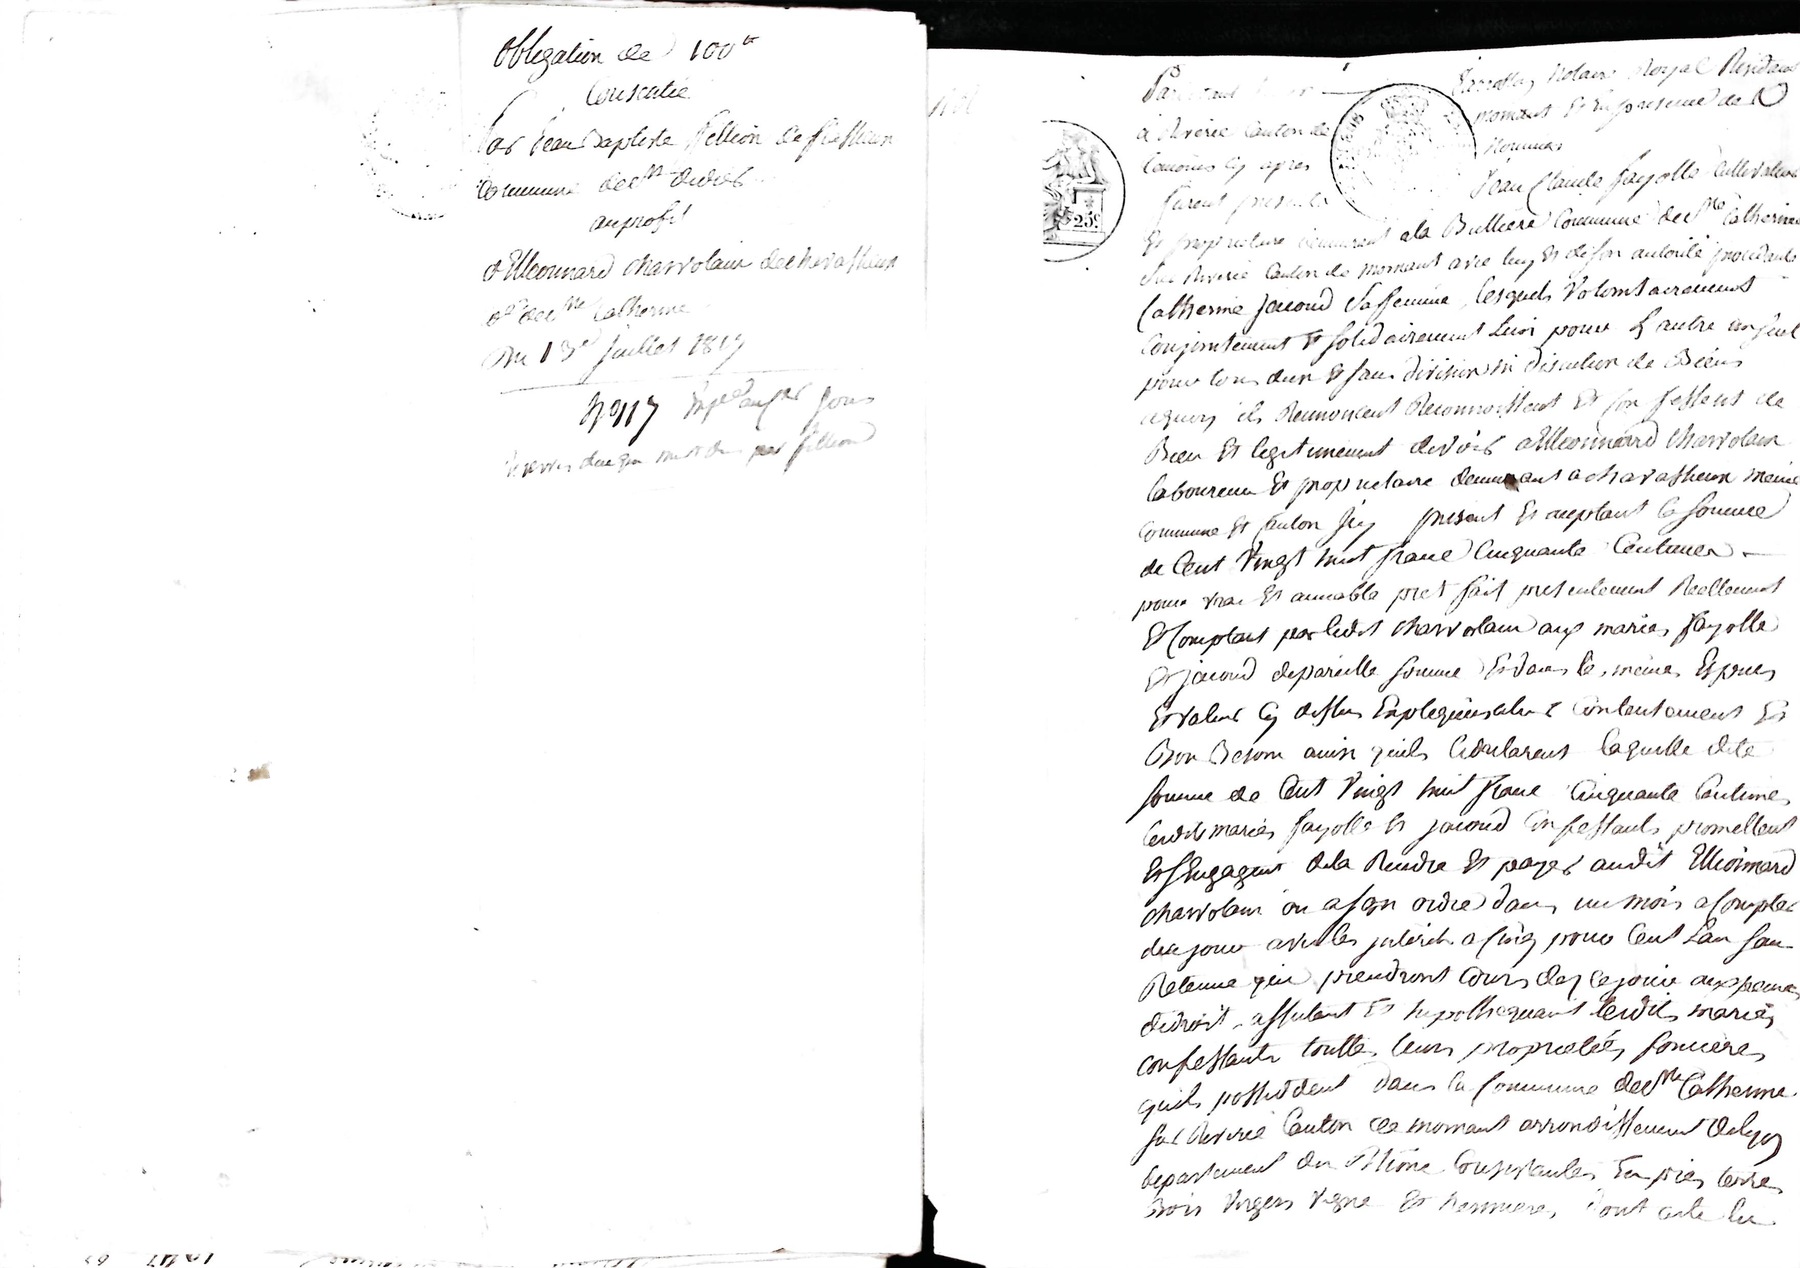 Obligation de 100tt
Consentie
Par Jean Baptiste Fellion de
Commune de St didier
au profit
d'Ennemond charvolain de chavassieux
Ste Catherine
Du 13e juillet 1817
N° 117
par fellion
Pardevant Notaire Royal Résidant
à Riverie Canton de mornant Et En presence de
temoins Cy apres Nommés
furent presents Jean Claude fayolle Cultivateur
Et proprietaire demeurant a la Bullière Commune de Ste Catherine
sur Riverie Canton de mornant avec luy Et de son autorité procédante
Catherine jacoud sa femme, lesquels Volontairement
Conjointement Et solidairement L'un pour L'autre un seul
pour tous d'eux Et sans division ni discution de Biens
aquoy ils Renoncent Reconnoissent Et Confessent de
Bien Et legitimement devoir a Ennemond charvolain
laboureur Et propriétaire demeurant a chavassieux meme
commune Et Canton Icy present Et acceptant la somme
de Cent Vingt huit franc Cinquante Centimes
pour vrai Et aimable pret fait presentement Reellement
Et Comptant par ledit charvolain aux mariés fayolle
Et jacoud de pareille somme Et dans les memes Especes
Et valeur Cy dessus Expliquées a leur Contentement Et
Bon Besoin ainsi quils le déclarent laquelle dite
somme de Cent Vingt huit franc Cinquante Centimes
lesdits mariés fayolle Et jacoud Confessants promettent
Et s'Engagent de la Rendre Et payer audit Ennemond
charvolain ou a son ordre dans un mois a Compter
de ce jour avec les intérêts a cinq pour Cent L'an sans
Retenue qui prendront Cours dez ce jour aux peines
de droit, affectant Et hypothequant lesdits mariés
confessants touttes leurs propriétés foncieres
quils possedent dans la Commune de Ste Catherine
sur Riverie Canton de mornant arrondissement de Lyon
departement du Rhône Consistantes En prés terres
Bois Vergers Vigne Et dont acte lu